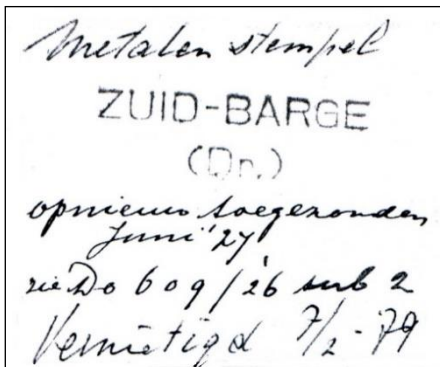 Metalen stempel
ZUID-BARGE
(Dr.)
opnieuw toegezonden
Juni '27
zie Do 609/26 sub 2
Vernietigd 7/2-79